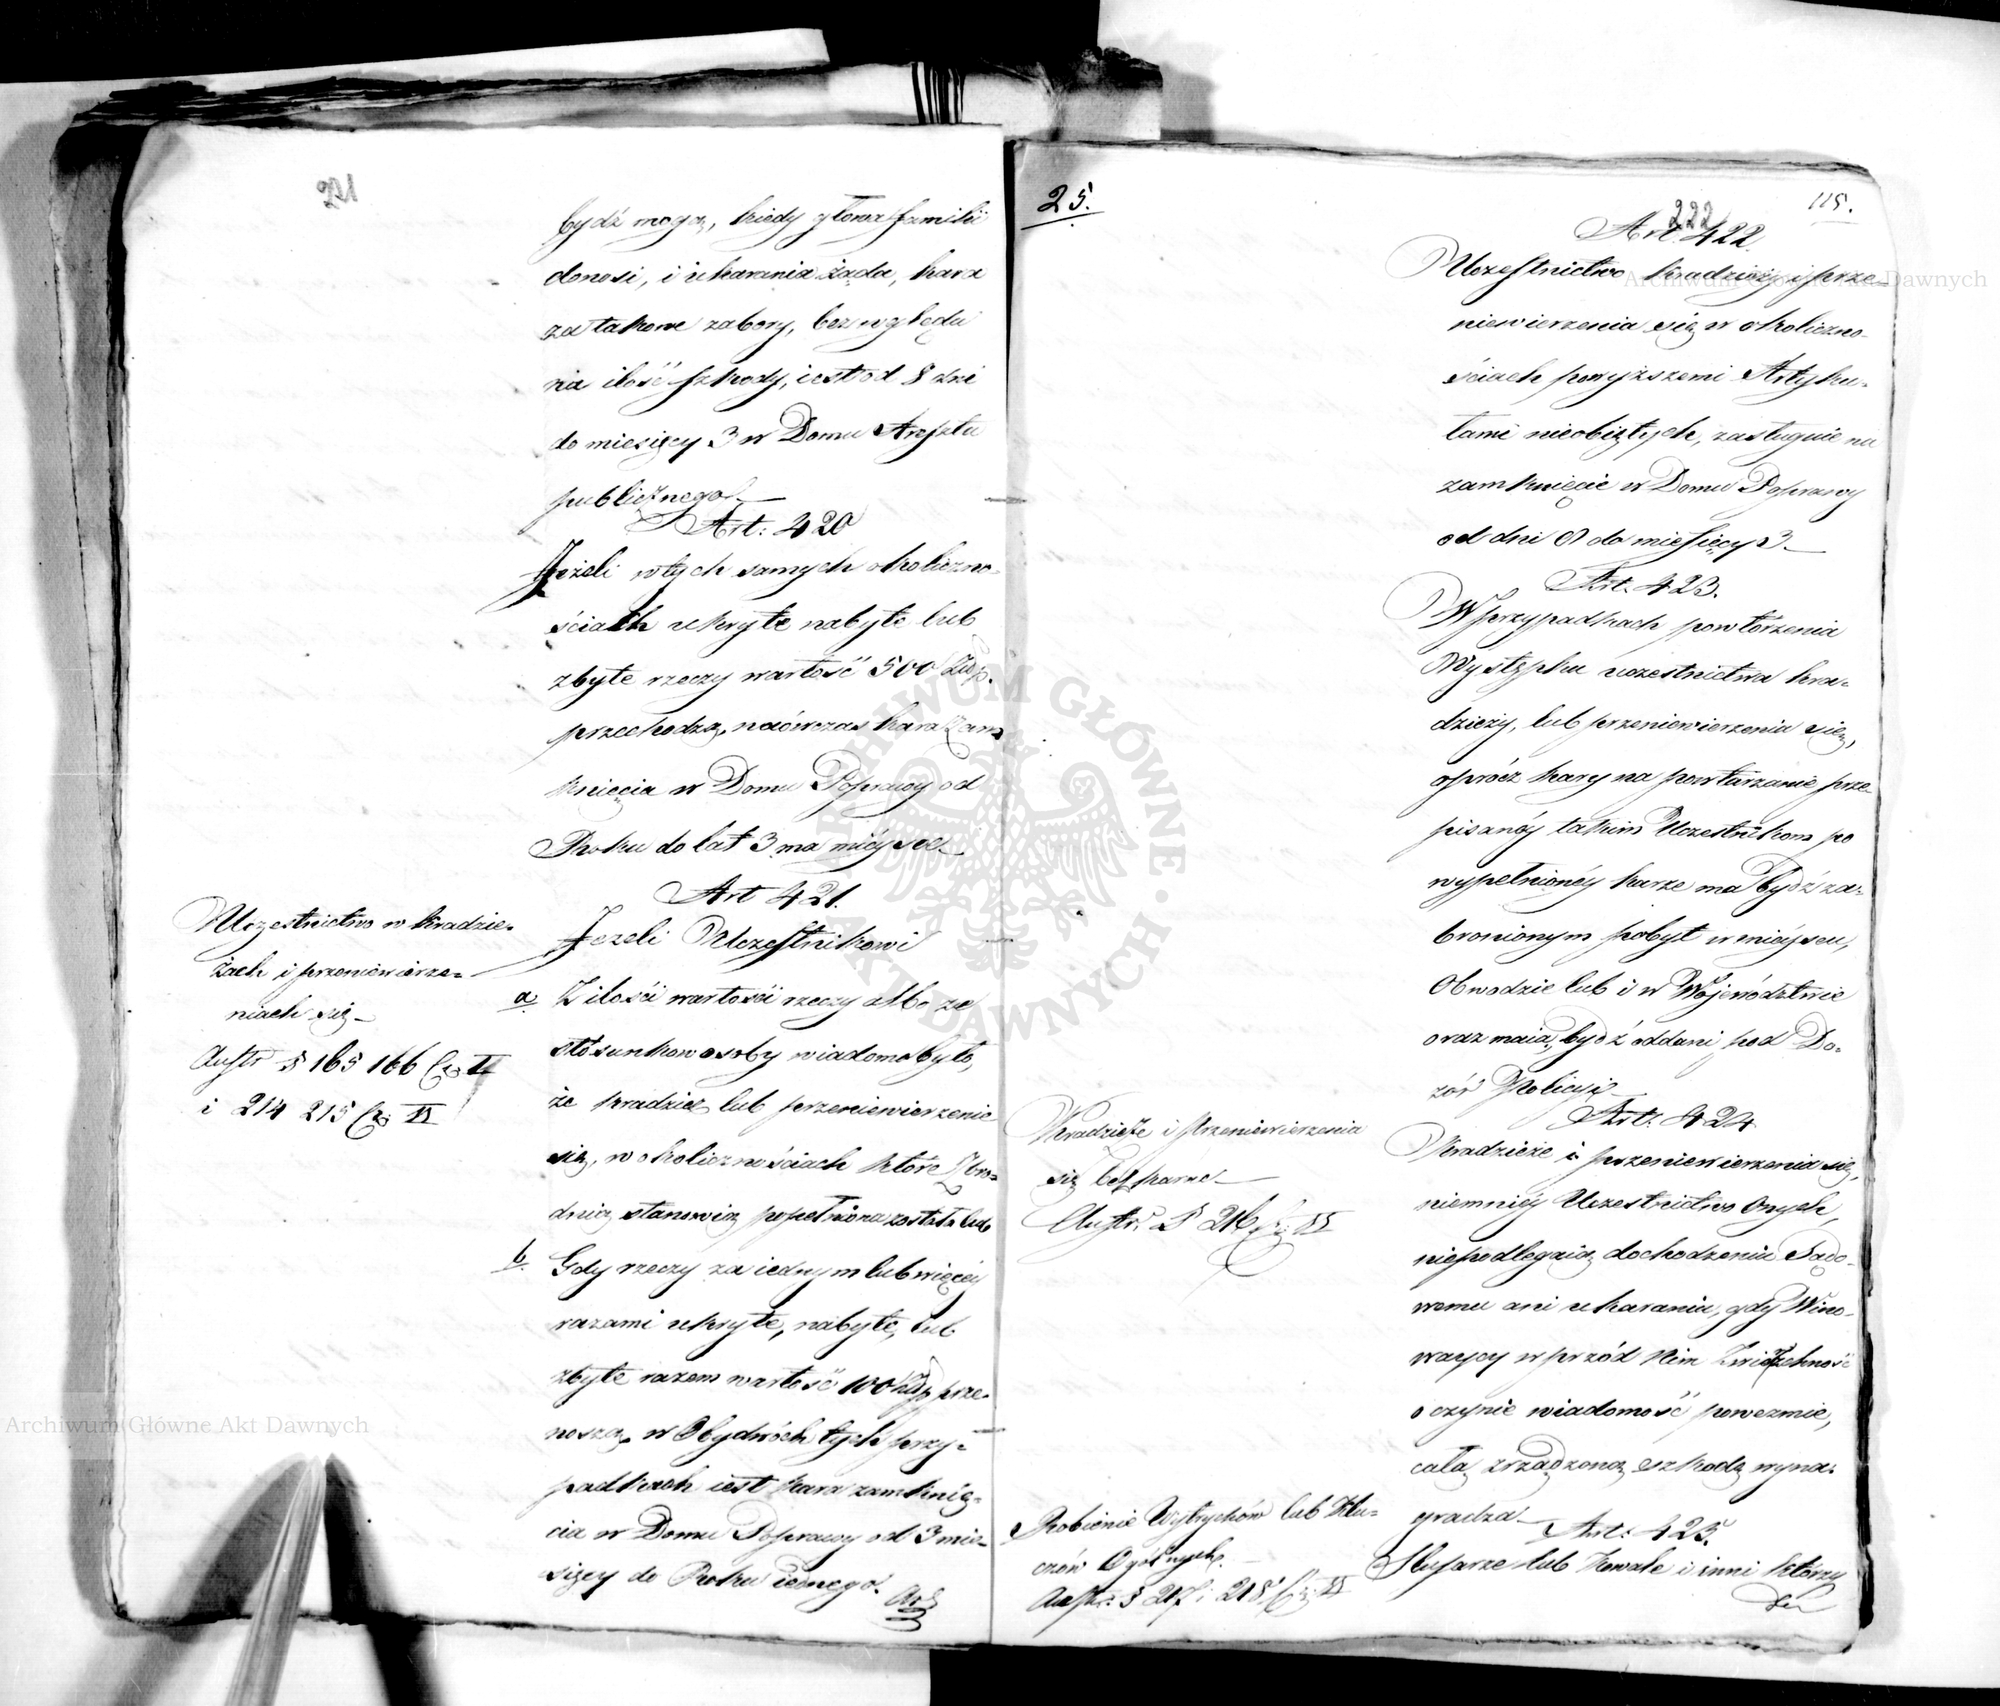 221
bydź mogą, kiedy głowa familii
donosi, i ukarania żąda, kara
za takowe zabory, bez względu
na ilość szkody, iest od 8 dni
do miesięcy 3 w Domu Aresztu
publicznego.
Art: 420
Jeżeli w tych samych okoliczno-
ściach ukryte nabyte lub
zbyte rzeczy wartość 500 Złłp.
przechodzą, naówczas kara zam
knięcia w Domu Poprawy od
Roku do lat 3 ma miéysce
Art 421.
Uczestnictwo w kradzie-
żach i przeniewierze-
niach się
Austr § 165 166 Cz. I
i 214 215 Cz: II
Jeżeli Uczestnikowi
a Z ilości wartości rzeczy albo ze
stosunkow osoby wiadomo było,
że kradzież lub przeniewierzenie
się, w okolicznościach które Zbro-
dnią stanowią popełniona została lub
b. Gdy rzeczy za iednym lub więcéy
razami ukryte, nabyte, lub
zbyte razem wartość 100 Złłp prze-
noszą, w Obydwóch tych przy-
padkach iest kara zamknię-
cia w Domu Poprawy od 3 mie-
sięcy do Roku iednego.
Art
25.
222
115.
Art. 422.
Uczestnictwo kradzieży i prze-
niewierzenia się w okoliczno-
ściach powyższemi Artyku-
łami nieobiętych, zasługuie na
zamknięcie w Domu Poprawy
od dni 8 do miesięcy 3
Art. 423.
W przypadkach powtórzenia
Występku uczestnictwa kra-
dzieży, lub przeniewierzenia się,
oprócz kary na powtarzanie prze-
pisanéy takim Uczestnikom po
wypełnionéy karze ma bydź za-
bronionym pobyt w miéyscu,
Obwodzie lub i w Województwie
oraz maią bydź oddani pod Do-
zór Policyi
Art. 424
Kradzieże i Przeniewierzenia
się bezkarne
Austr. § 216 Cz: II
Kradzieże i przeniewierzenia się,
niemniéy Uczestnictwo Onych,
niepodlegaią dochodzeniu Sądo-
wemu ani ukaraniu, gdy Wino-
waycy wprzód nim Zwierzchność
o czynie wiadomość poweźmie,
całą zrządzoną szkodę wyna-
gradza
Art: 425.
Robienie Wytrychów lub Klu-
czów Ogólnych.
Austr: § 217 i 218 Cz: II
Slusarze lub Kowale i inni którzy